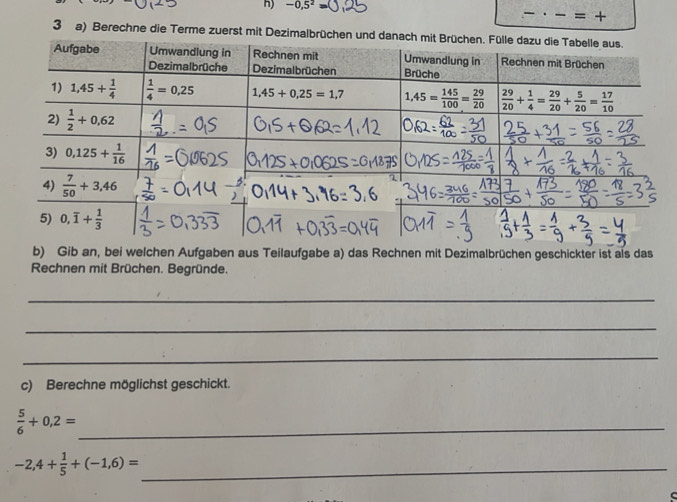 h) −0,5² = 0,25
− · − = +
3 a) Berechne die Terme zuerst mit Dezimalbrüchen und danach mit Brüchen. Fülle dazu die Tabelle aus.
Aufgabe | Umwandlung in Dezimalbrüche | Rechnen mit Dezimalbrüchen | Umwandlung in Brüche | Rechnen mit Brüchen
1) 1,45 + 1/4 | 1/4 = 0,25 | 1,45 + 0,25 = 1,7 | 1,45 = 145/100 = 29/20 | 29/20 + 1/4 = 29/20 + 5/20 = 17/10
2) 1/2 + 0,62 | 1/2 = 0,5 | 0,5 + 0,62 = 1,12 | 0,62 = 62/100 = 31/50 | 25/50 + 31/50 = 56/50 = 28/25
3) 0,125 + 1/16 | 1/16 = 0,0625 | 0,125 + 0,0625 = 0,1875 | 0,125 = 125/1000 = 1/8 | 1/8 + 1/16 = 2/16 + 1/16 = 3/16
4) 7/50 + 3,46 | 7/50 = 0,14 | 0,14 + 3,46 = 3,6 | 3,46 = 346/100 = 173/50 | 7/50 + 173/50 = 180/50 = 18/5 = 3 3/5
5) 0,1̅ + 1/3 | 1/3 = 0,333̅ | 0,11̅ + 0,33̅ = 0,44̅ | 0,11̅ = 1/9 | 1/9 + 1/3 = 1/9 + 3/9 = 4/9
b) Gib an, bei welchen Aufgaben aus Teilaufgabe a) das Rechnen mit Dezimalbrüchen geschickter ist als das
Rechnen mit Brüchen. Begründe.
c) Berechne möglichst geschickt.
5/6 + 0,2 =
−2,4 + 1/5 + (−1,6) =